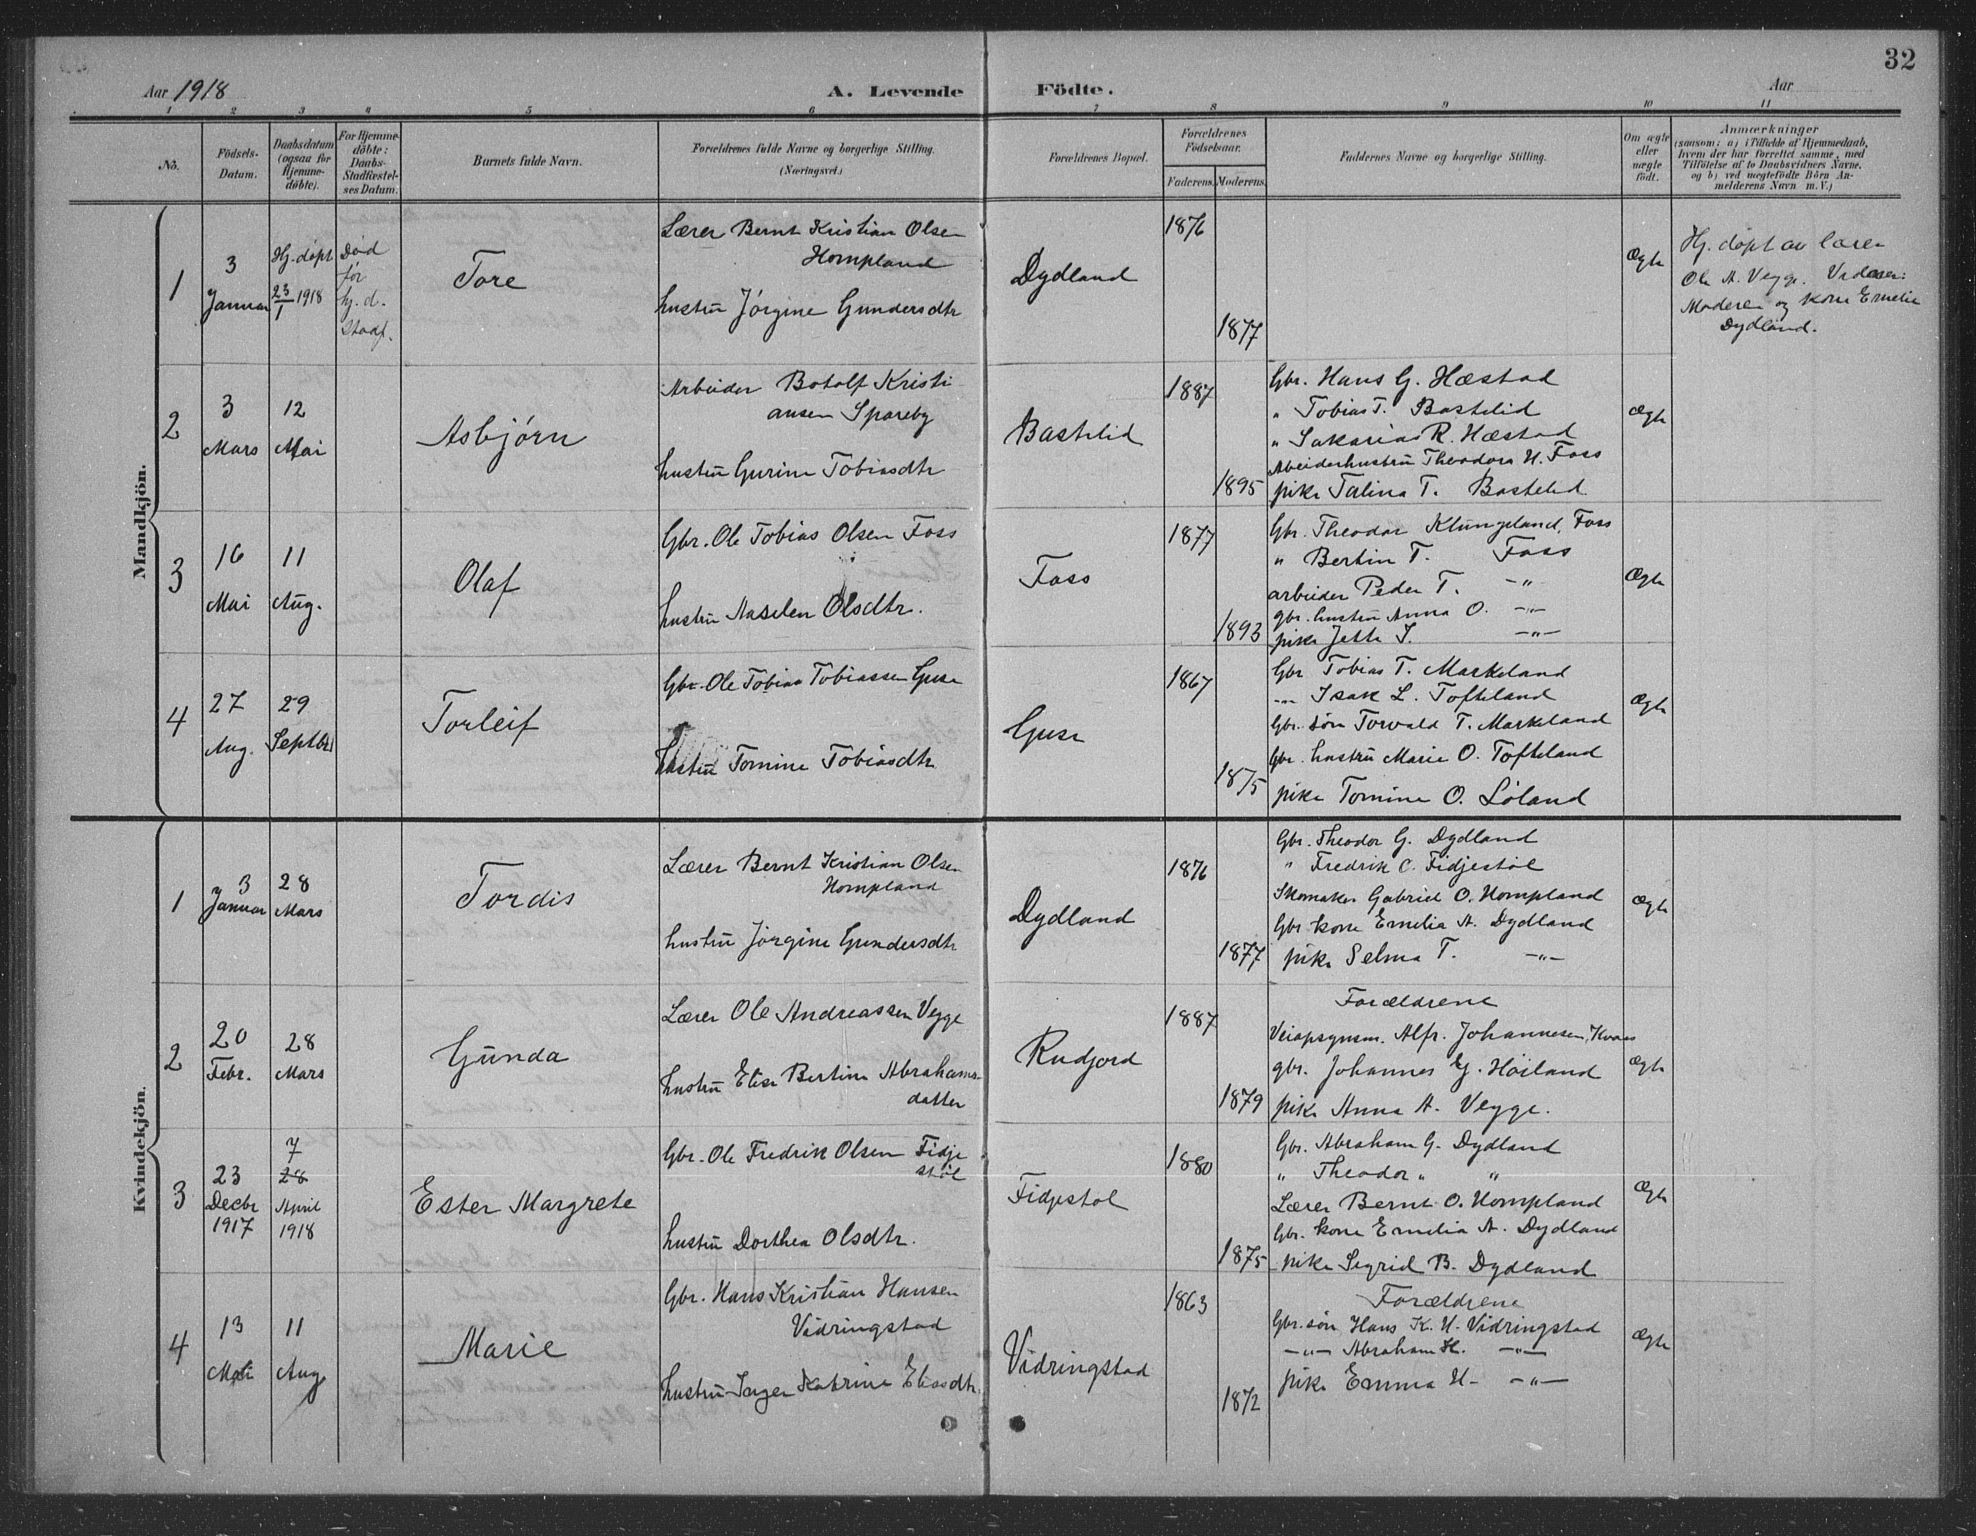 32
Aar 1918
A. Levende Födte.
Aar
1 2 3 4 5 6 7 8 9 10 11
No.
Födsels-
Datum.
Daabsdatum
(ogsaa for
Hjemme-
döbte).
For Hjemme-
döbte:
Daabs-
Stadfæstel-
ses Datum.
Barnets fulde Navn.
Forældrenes fulde Navne og borgerlige Stilling.
(Næringsvei.)
Forældrenes Bopæl.
Forældrenes
Födselsaar.
Faderens. Moderens.
Faddernes Navne og borgerlige Stilling.
Om ægte
eller
uægte
födt.
Anmærkninger
(saasom: a) i Tilfælde af Hjemmedaab,
hvem der har forrettet samme, med
Tilföielse af to Daabsvidners Navne,
og b) ved uægtefödte Börn An-
melderens Navn m. V.)
Mandkjön.
1
3
Januar
Hj. døpt
23/1 1918
Død
før
hj. d.
stadf.
Tore
Lærer Bernt Kristian Olsen
Hompland
hustru Jørgine Gundersdtr
Dydland
1876
1877
Ægte
Hj. døpt av lærer
Ole A. Vegge.
Moderen og kone Emelie
Dydland.
2
3
Mars
12
Mai
Asbjørn
Arbeider Botolf Kristi
ansen Spareby
hustru Gurine Tobiasdtr
Bastelid
1887
1895
Gbr. Hans G. Hæstad
" Tobias T. Bastelid
" Sakarias R. Hæstad
Abeiderhustru Theodora H. Foss
pike Talina T. Bastelid
Ægte
3
16
Mai
11
Aug.
Olaf
Gbr. Ole Tobias Olsen Foss
hustru Aaselen Olsdtr.
Foss
1877
1893
Gbr. Theodor Klungeland, Foss
" Bertin T. Foss
arbeider Peder T. -"-
gbr. hustru Anna O. -"-
pike Jette S. -"-
Ægte
4
27
Aug.
29
Septbr
Torleif
Gbr. Ole Tobias Tobiassen Guse
hustru Tomine Tobiasdtr
Guse
1867
1875
Gbr Tobias T. Markeland
-"- Isak L. Tofteland
Gbr. søn Torvald T. Markeland
Gbr. hustru Marie O. Tofteland
pike Tomine O. Løland
Ægte
Kvindekjön.
1
3
Januar
28
Mars
Tordis
Lærer Bernt Kristian Olsen
Hompland
hustru Jørgine Gundersdtr
Dydland
1876
1877
Gbr. Theodor G. Dydland
" Fredrik C. Fidjestøl
Skomaker Gabriel O. Hompland
Gbr kone Emelia A. Dydland
pike Selma T. -"-
Ægte
2
20
Febr.
28
Mars
Gunda
Lærer Ole Andreassen Vegge
hustru Elise Bertine Abrahams-
datter
Rudjord
1887
1879
Forældrene
Veiopsynsm. Alfr. Johannesen, Kvaas
gbr. Johannes G. Höiland
pike Anna A. Vegge.
Ægte
3
23
Decbr
1917
7
28
April
1918
Ester Margrete
Gbr. Ole Fredrik Olsen Fidje
støl
hustru Dorthea Olsdtr.
Fidjestøl
1880
1875
Gbr. Abraham G. Dydland
" Theodor " "
Lærer Bernt O. Hompland
Gbr. kone Emelia A. Dydland
pike Sigrid B. Dydland
Ægte
4
13
Mai
11
Aug
Marie
Gbr. Hans Kristian Hansen
Vidringstad
hustru Inger Katrine Eliasdtr.
Vidringstad
1863
1872
Forældrene
Gbr. søn Hans K. H. Vidringstad
-"- Abraham H. -"-
pike Emma H. -"-
Ægte